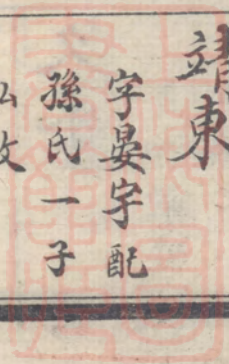 靖東
字晏宇配
孫氏一子
弘牧